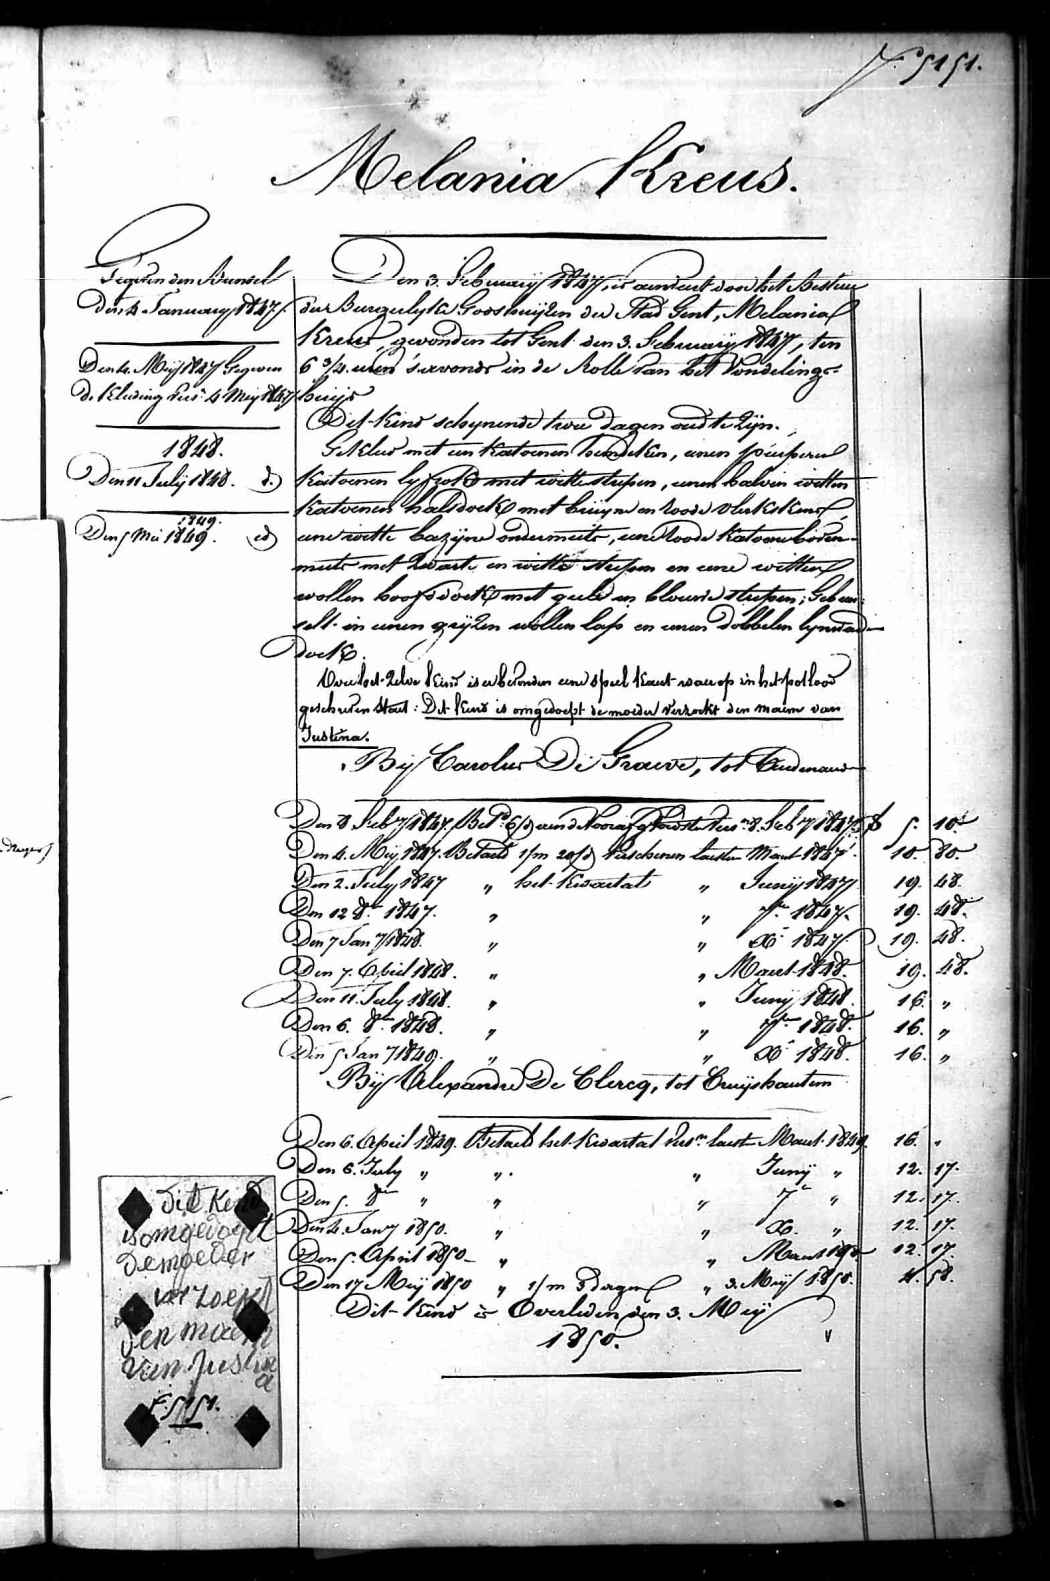 f° 5151.
Melania Kreus.
Gegeven den Bunsel
den 4 January 1847.
Den 4. Meij 1847 Gegeven
de kleeding vers. 4 Meij 1847
1848.
Den 11 July 1848. d.
1849.
Den 5 Mei 1849. id
Den 3. February 1847, is aenveert door het Bestuer
der Burgerlyke Godshuijzen der Stad Gent, Melania
Kreus, gevonden tot Gent den 3. February 1847, ten
6 3/4 uren s'avonds in de Rolle van het Vondelings-
huijs
Dit kind schynende twee dagen oud te zijn.
Gekleed met een katoenen hemdeken, eenen
katoenen lyfrok met witte strepen, eenen halven witten
katoenen halsdoek met bruijne en roode vlekskens,
eene witte bazijne ondermuts, eene roode katoene boven-
muts met zwarte en witte strepen en eene witten
wollen hoofdoek met geele en blauwe strepen; Gebun-
selt in eenen grijzen wollen lap en eenen dobbelen lynwaed-
doek.
Over het zelve kind is er bevonden eene speel kaert waer op in het potlood
geschreven staet: Dit kind is omgedoept de moeder verzoekt den maem van
Justina.
Bij Carolus De Graeve, tot Audenaerde
Den 8 Feby 1847. Bet. 6/d 8. Feby 1847. 5. 10
Den 4. Meij 1847. Betaeld 1/m 20/d verschenen laesten Maert 1847. 10. 80.
Den 2. July 1847 „ het kwartael „ Junij 1847 19. 48.
Den 12 8er 1847. „ „ 7er 1847. 19. 48.
Den 7 Jany 1848. „ „ Xr 1847. 19. 48.
Den 7. April 1848. „ „ Maert 1848. 19. 48.
Den 11. July 1848. „ „ Junij 1848. 16. „
Den 6. 8er 1848. „ „ 7er 1848. 16. „
Den 5 Jany 1849. „ „ Xr 1848. 16. „
Bij Alexandre De Clercq, tot Cruijshautem
Den 6. April 1849. Betaeld het kwartael vers. laest Maert 1849. 16. „
Den 6. July „ „ „ Junij „ 12. 17.
Den 5. 8er „ „ „ 7er „ 12. 17.
Den 4. Jany 1850. „ „ X. „ 12. 17.
Den 5. April 1850 „ „ Maert 1850 12. 17.
Den 17 Meij 1850 „ 1/m 3 dagen „ 3. Meij 1850. 4. 58.
Dit kind is Overleden den 3. Meij
1850.
Dit Kend
is omgedoept
de moeder
verzoekt
den maem
van Justin
a
f° 5151.